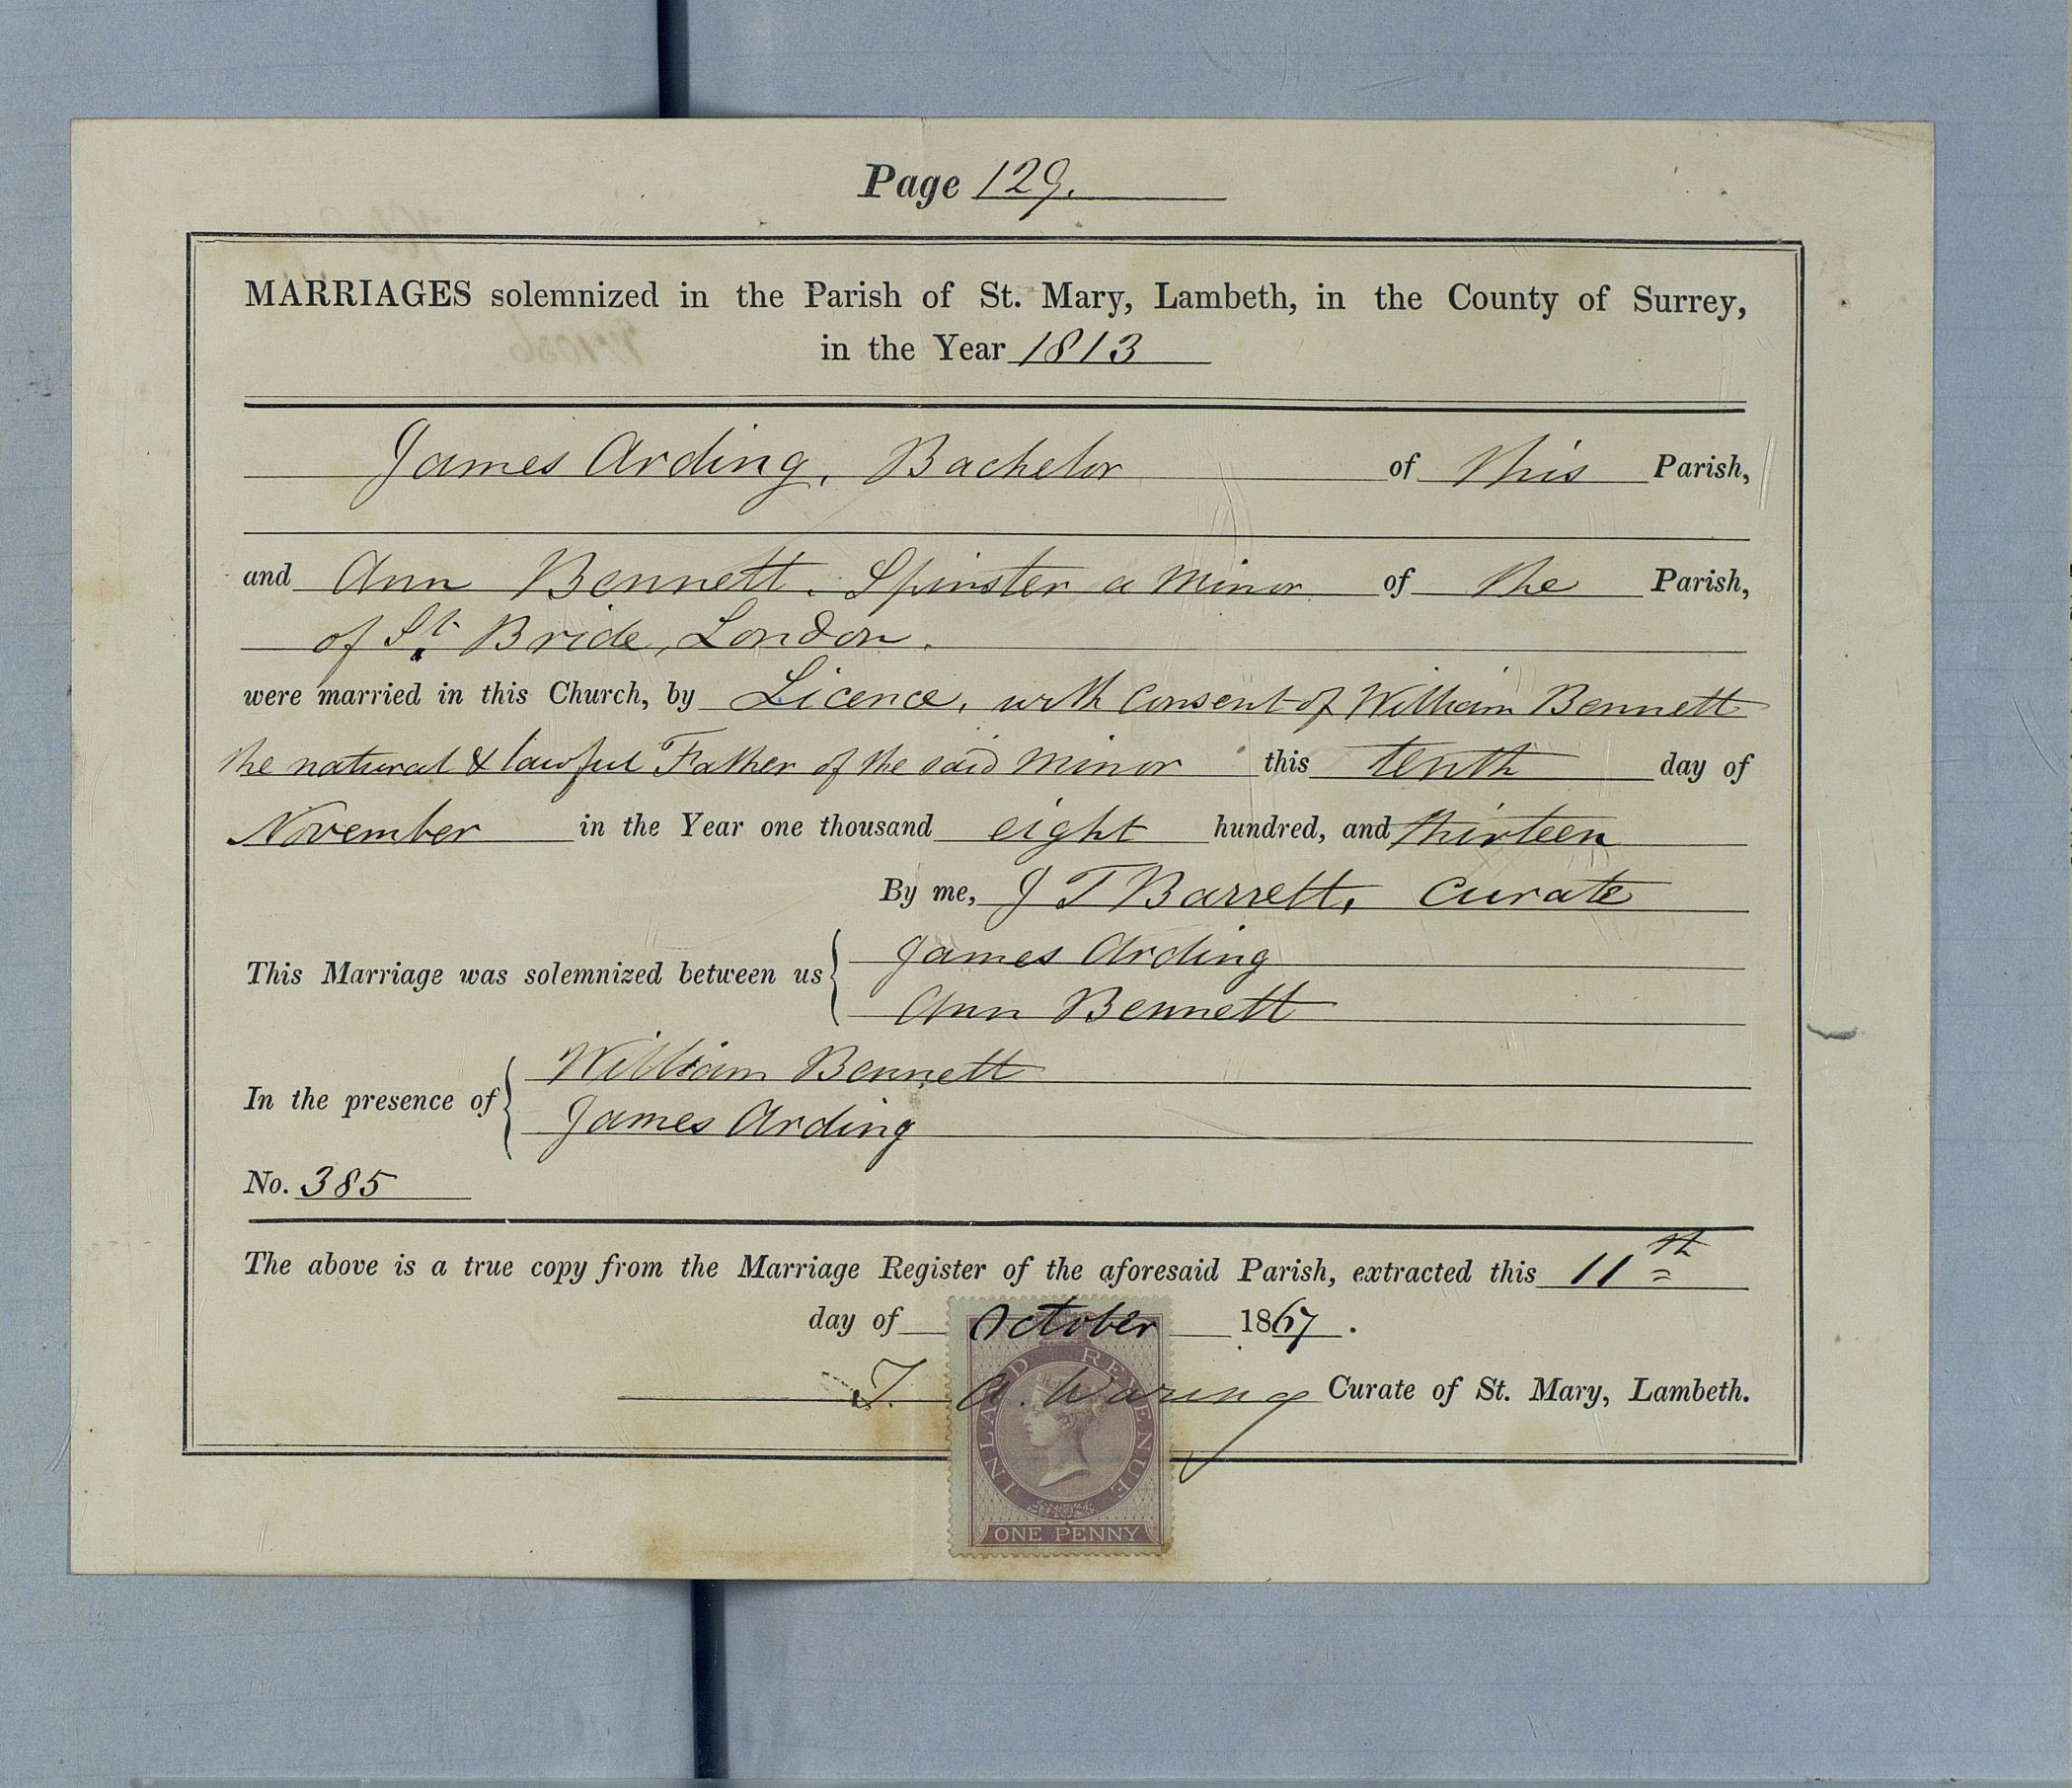 Page 129.
MARRIAGES solemnized in the Parish of St. Mary, Lambeth, in the County of Surrey,
in the Year 1813
James Arding, Bachelor of this Parish,
and Ann Bennett. Spinster a Minor of the Parish,
of St. Bride, London.
were married in this Church, by Licence, with Consent of William Bennett
the natural & lawful Father of the said Minor this tenth day of
November in the Year one thousand eight hundred, and thirteen
By me, J T Barrett, Curate
This Marriage was solemnized between us { James Arding
Ann Bennett
In the presence of { William Bennett
James Arding
No. 385
The above is a true copy from the Marriage Register of the aforesaid Parish, extracted this 11th
day of October 1867.
T. A. Waring Curate of St. Mary, Lambeth.
INLAND REVENUE
ONE PENNY